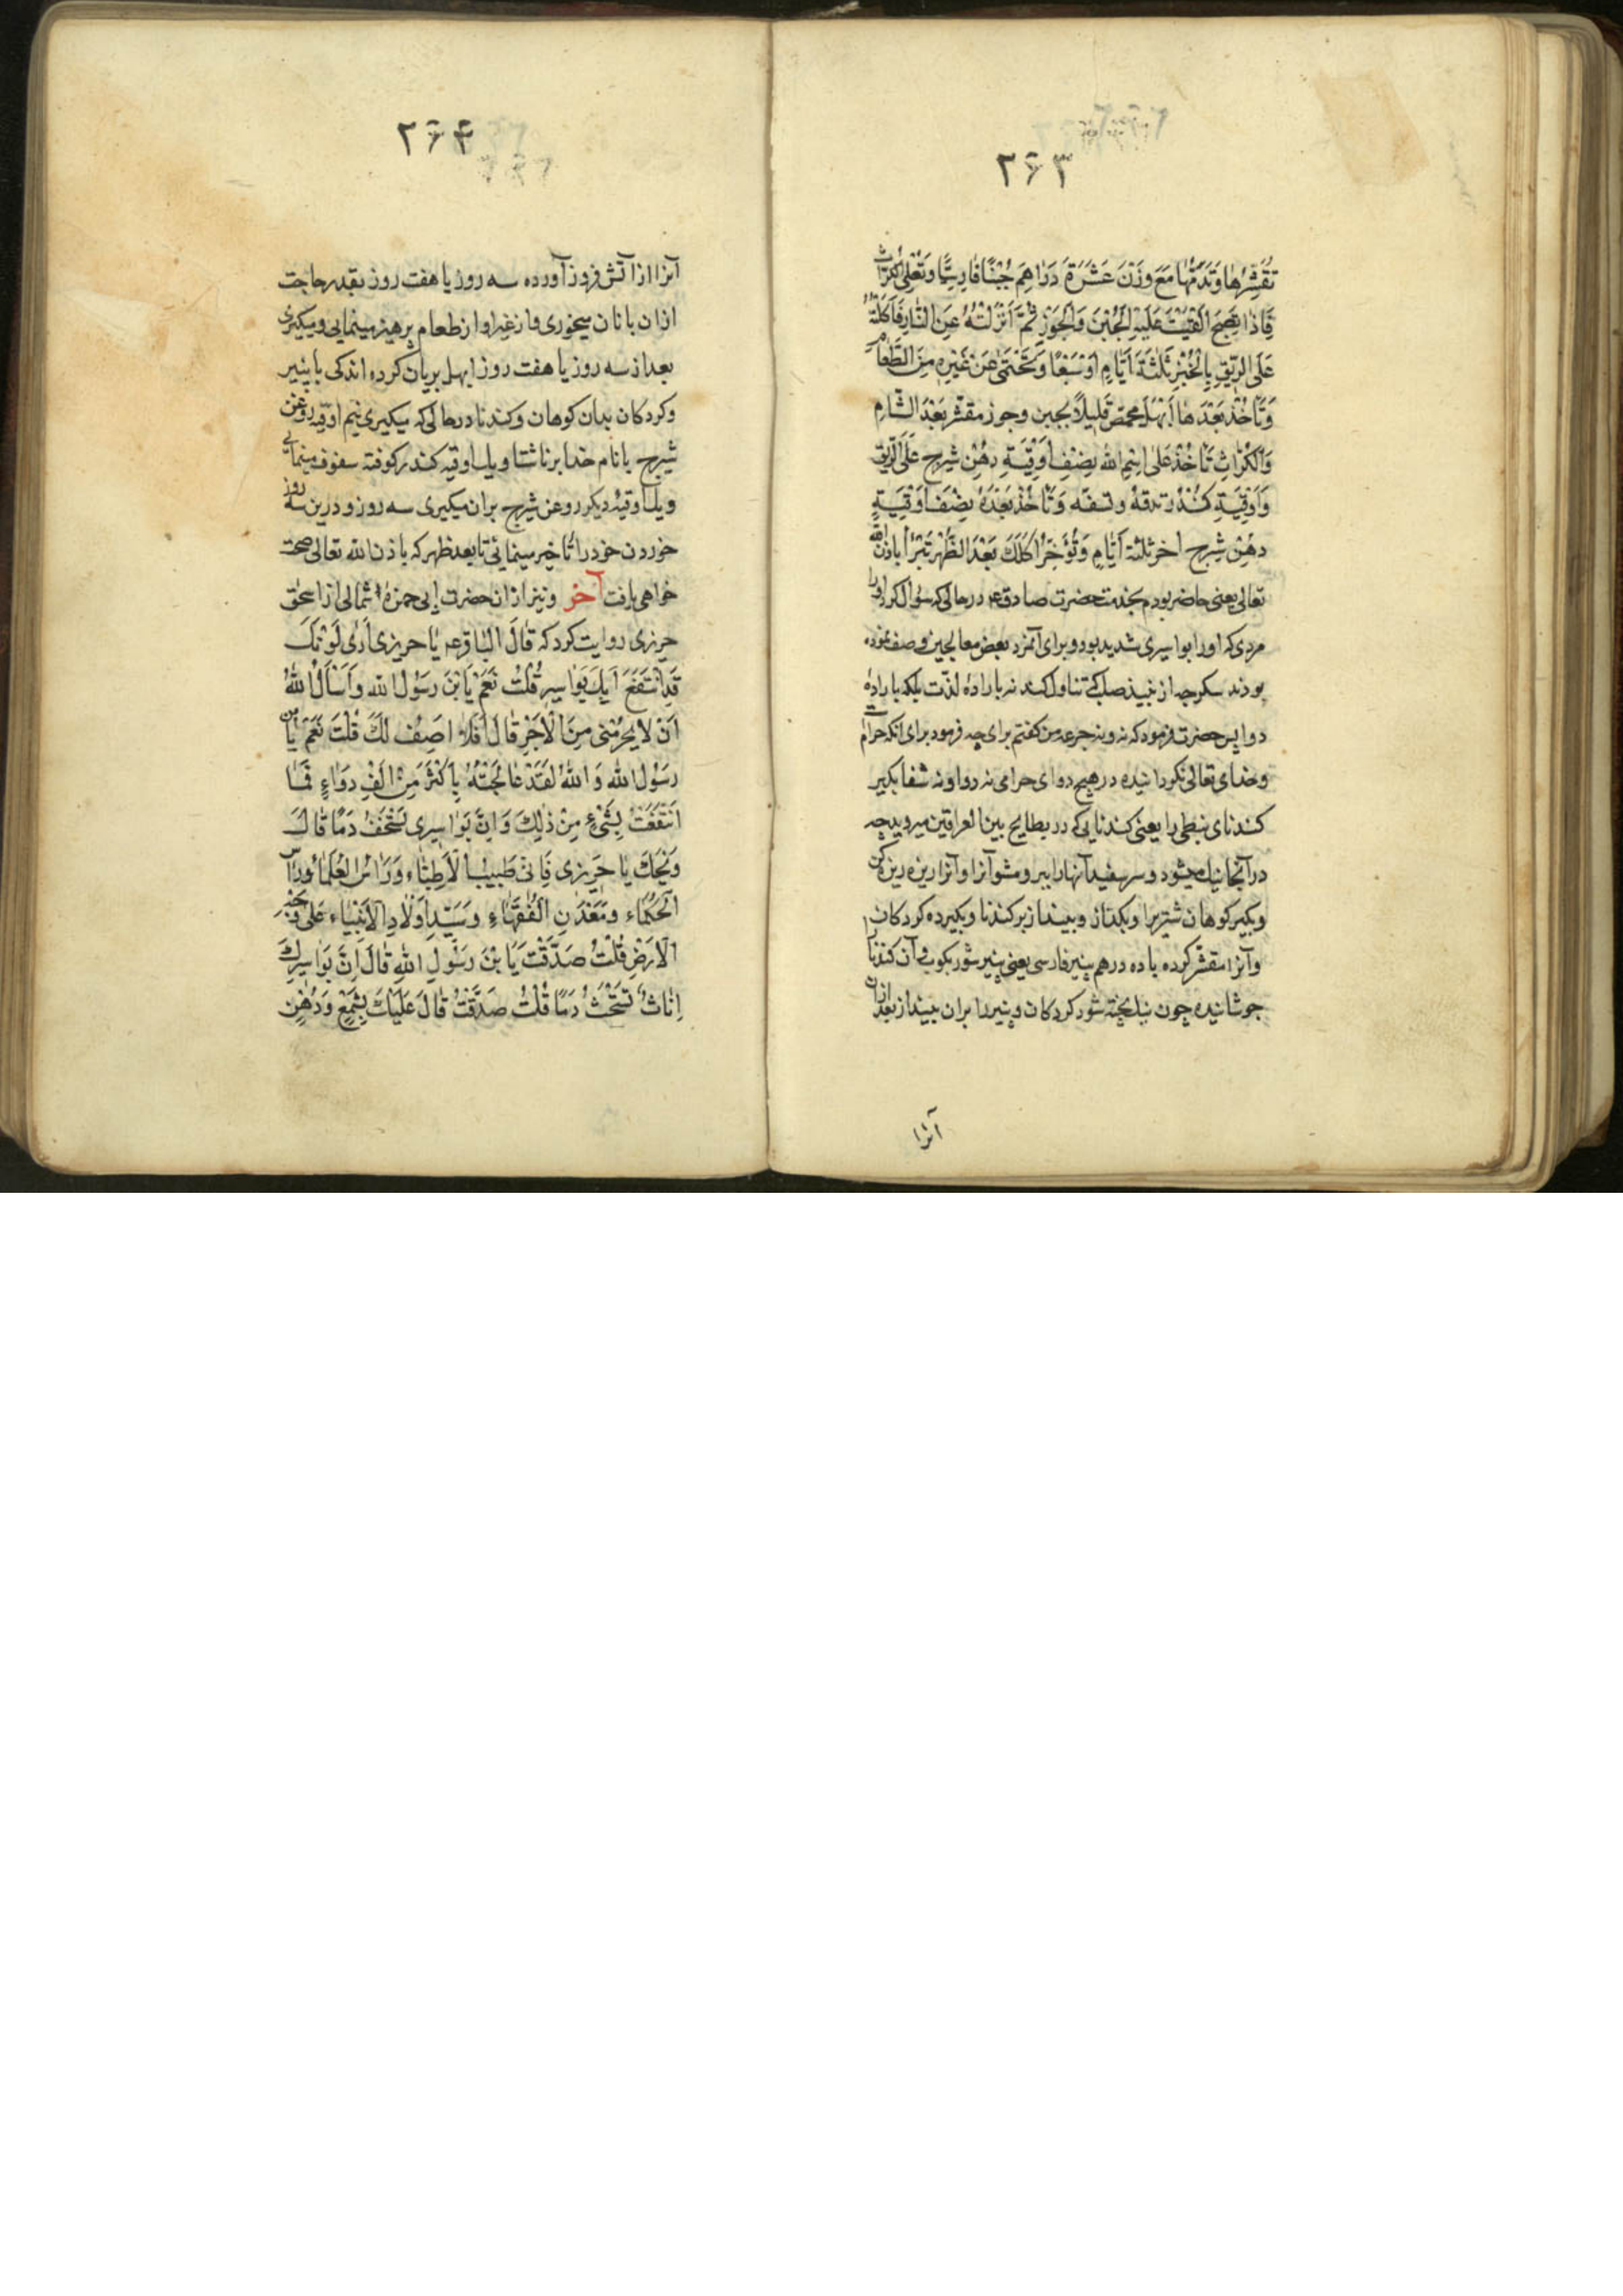 ۲۶۳
تُقَشِّرُهَا وَتَدُقُّهَا مَعَ وَزْنِ عَشَرَةِ دَرَاهِمَ جُبْنًا فَارِسِيًّا وَتَغْلِی الْکُرَّاثَ
فَاِذَا نَضِجَ اَلْقَيْتَ عَلَيْهِ الْجُبْنَ وَالْجَوْزَ ثُمَّ اَنْزَلْتَهُ عَنِ النَّارِ فَاَکَلْتَهُ
عَلَی الرِّيقِ بِالْخُبْزِ ثَلٰثَةَ اَيَّامٍ اَوْ سَبْعًا وَتَحْتَمِی عَنْ غَيْرِهِ مِنَ الطَّعَامِ
وَتَأْخُذُ بَعْدَهَا اَبْهَلَ محمص قَلِيلًا بجبن وجوز مقشر بَعْدَ السَّنَام
وَالْکُرَّاثِ تَأْخُذُ عَلَی اسْمِ اللهِ نِصْفَ اَوْقِيَةِ دُهْنِ شيرج عَلَی الرِّيقِ
وَاَوْقِيَةِ کُنْدُر تدقه وتسفه وَتَأْخُذُ بَعْدَهُ نِصْفَ اَوْقِيَةِ
دهن شيرج اخر ثلثة اَيَّامٍ وَتُؤَخِّرُ اَکْلَکَ بَعْدَ الظُّهْرِ تَبْرَأُ باذن الله
تعالی یعنی حاضر بودم بخدمت حضرت صادق ع در حالی که سؤال کرد او را
مردی که او را بواسیری شدید بود و برای آنمرد بعض معالجین وصف نموده
بودند سکرجه از نبیذ صلب که تناول کند نه باراده لذّت بلکه باراده
دوا پس حضرت فرمود که نه و نه جرعه من کفتم برای چه فرمود برای انکه حرام است
و خدای تعالی نکردانیده در هیچ دوای حرامی نه دوا و نه شفا بکیر
کندنای نبطی را یعنی کندنایی که در بطایح بین العراقین میروید چه
در آنجا نیک میشود و سر سفید آنها را ببر و مشو آنرا و آنرا ریزه ریزه کن
و بکیر کوهان شتریرا و بکداز و بینداز بر کندنا و بکیر ده کردکان
و آنرا مقشر کرده با ده درهم پنیر فارسی یعنی پنیر شور بکوب و آن کندنا را
جوشانیده چون نیک پخته شود کردکان و پنیر را بران بینداز بعد ازان
آنرا
۲۶۴
آنرا از آتش فرود آورده سه روز یا هفت روز بقدر حاجت
ازان بانان میخوری و از غیر او از طعام پرهیز مینمایی و میکیری
بعد از سه روز یا هفت روز ابهل بریان کرده اندکی با پنیر
و کردکان بدان کوهان و کندنا در حالی که میکیری نیم اوقیه روغن
شیرج بانام خدا بر ناشتا و یک اوقیه کندر کوفته سفوف مینمایی
و یک اوقیهٔ دیکر روغن شیرج بران میکیری سه روز و درین سه روز
خوردن خود را تاخیر مینمائی تا بعد ظهر که باذن الله تعالی صحت
خواهی یافت آخر و نیز از ان حضرت ابی حمزهٔ ثمالی از اسحق
حریزی روایت کرد که قَالَ الْبَاقر ع یَا حریزی اَرَی لَوْنَکَ
قَدِ انْتَقَعَ اَبِکَ بَوَاسِیر قُلْتُ نَعَمْ یَا بْنَ رَسُولِ اللهِ وَاَسْأَلُ اللهَ
اَنْ لَا يَحْرِمَنِی مِنَ الْاَجْرِ قَالَ اَفَلَا اَصِفُ لَکَ قُلْتَ نَعَمْ یَا بن
رَسُولِ الله وَ اللهِ لَقَدْ عَالَجْتُهُ بِاَکْثَرَ مِنْ اَلْفِ دَوَاءٍ فَمَا
انْتَفَعْتُ بِشَیْءٍ مِنْ ذٰلِکَ وَاِنَّ بَوَاسِیری تَشْخَبُ دَمًا قَالَ
وَیْحَکَ یَا حَرِیزِی فَاِنِّی طَبِیبُ الْاَطِبَّاءِ وَرَاْسُ الْعُلَمَاءِ وَرَأس
الْحُکَمَاءِ وَمَعْدَنِ الْفُقَهَاءِ وَسَیِّدِ اَوْلَادِ الْاَنْبِیَاءِ عَلَی وَجْهِ
الْاَرْضِ قُلْتُ صَدَقْتَ یَا بْنَ رَسُولِ اللهِ قَالَ اِنَّ بَوَاسِیرَکَ
اِنَاثٌ تَشْخَبُ دَمًا قُلْتُ صَدَقْتَ قَالَ عَلَیْکَ بِشَمْعٍ وَدُهْنِ